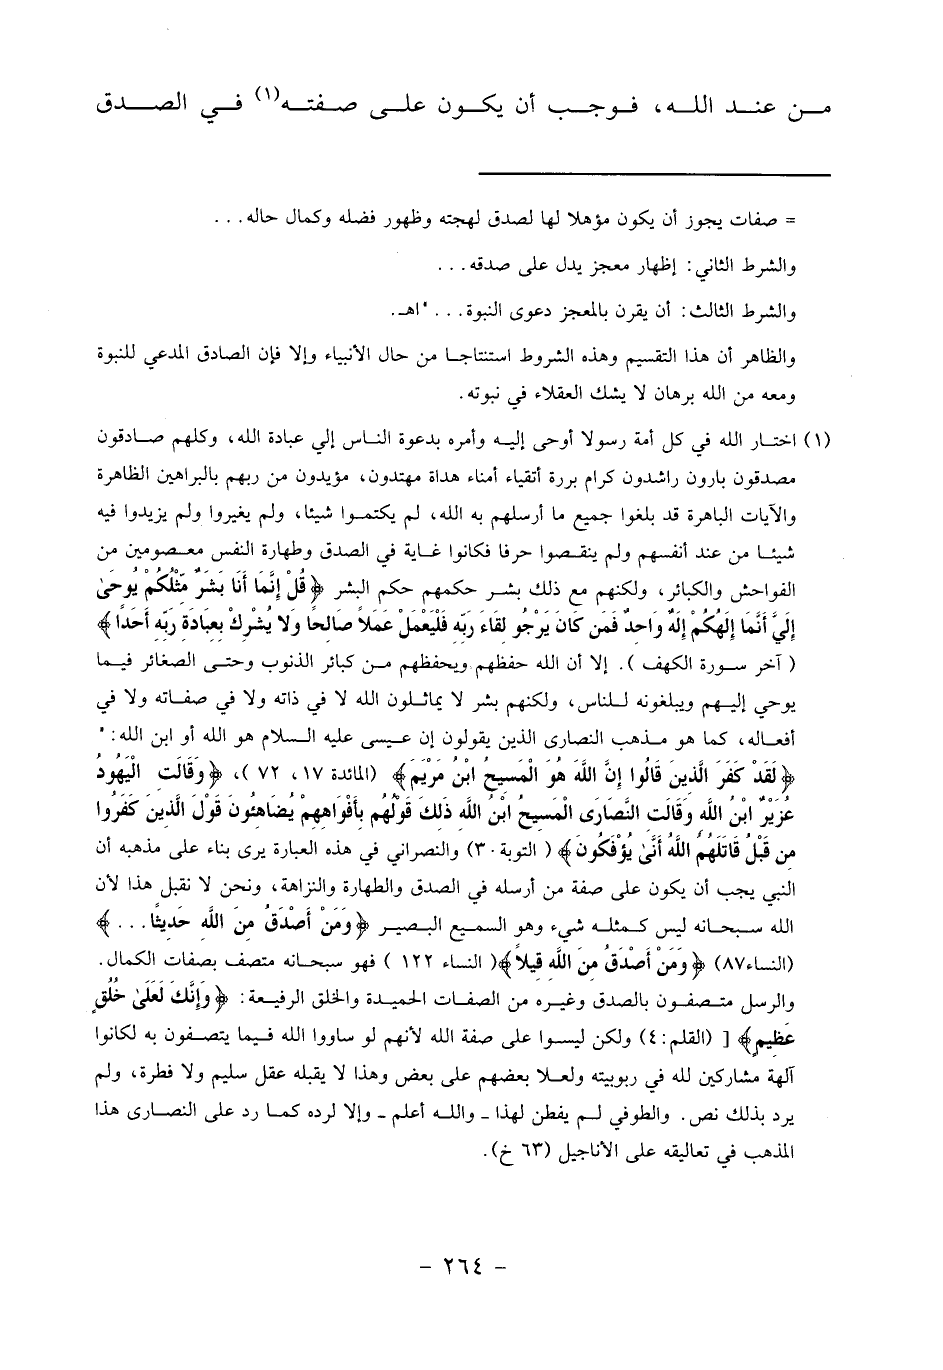 مـن عنـد اللـه، فـوجـب أن يكـون علـى صـفتـه(١) فـي الصـدق
= صفات يجوز أن يكون مؤهلا لها لصدق لهجته وظهور فضله وكمال حاله...
والشرط الثاني: إظهار معجز يدل على صدقه...
والشرط الثالث: أن يقرن بالمعجز دعوى النبوة... "اهـ.
والظاهر أن هذا التقسيم وهذه الشروط استنتاجا من حال الأنبياء وإلا فإن الصادق المدعي للنبوة
ومعه من الله برهان لا يشك العقلاء في نبوته.
(١) اختار الله في كل أمة رسولا أوحى إليه وأمره بدعوة الناس إلي عبادة الله، وكلهم صادقون
مصدقون بارون راشدون كرام بررة أتقياء أمناء هداة مهتدون، مؤيدون من ربهم بالبراهين الظاهرة
والآيات الباهرة قد بلغوا جميع ما أرسلهم به الله، لم يكتموا شيئا، ولم يغيروا ولم يزيدوا فيه
شيئا من عند أنفسهم ولم ينقصوا حرفا فكانوا غاية في الصدق وطهارة النفس معصومين من
الفواحش والكبائر، ولكنهم مع ذلك بشر حكمهم حكم البشر ﴿قُلْ إِنَّمَا أَنَا بَشَرٌ مِّثْلُكُمْ يُوحَىٰ
إِلَيَّ أَنَّمَا إِلَهُكُمْ إِلَهٌ وَاحِدٌ فَمَن كَانَ يَرْجُو لِقَاءَ رَبِّهِ فَلْيَعْمَلْ عَمَلاً صَالِحًا وَلا يُشْرِكْ بِعِبَادَةِ رَبِّهِ أَحَدًا﴾
( آخر سورة الكهف ). إلا أن الله حفظهم ويحفظهم من كبائر الذنوب وحتى الصغائر فيما
يوحي إليهم ويبلغونه للناس، ولكنهم بشر لا يماثلون الله لا في ذاته ولا في صفاته ولا في
أفعاله، كما هو مذهب النصارى الذين يقولون إن عيسى عليه السلام هو الله أو ابن الله: "
﴿لَقَدْ كَفَرَ الَّذِينَ قَالُوا إِنَّ اللَّهَ هُوَ الْمَسِيحُ ابْنُ مَرْيَمَ﴾ (المائدة ١٧، ٧٢ )، ﴿وَقَالَتِ الْيَهُودُ
عُزَيْرٌ ابْنُ اللَّهِ وَقَالَتِ النَّصَارَى الْمَسِيحُ ابْنُ اللَّهِ ذَلِكَ قَوْلُهُم بِأَفْوَاهِهِمْ يُضَاهِئُونَ قَوْلَ الَّذِينَ كَفَرُوا
مِن قَبْلُ قَاتَلَهُمُ اللَّهُ أَنَّىٰ يُؤْفَكُونَ﴾ ( التوبة ٣٠) والنصراني في هذه العبارة يرى بناء على مذهبه أن
النبي يجب أن يكون على صفة من أرسله في الصدق والطهارة والنزاهة، ونحن لا نقبل هذا لأن
الله سبحانه ليس كمثله شيء وهو السميع البصير ﴿وَمَنْ أَصْدَقُ مِنَ اللَّهِ حَدِيثًا...﴾
(النساء٨٧) ﴿وَمَنْ أَصْدَقُ مِنَ اللَّهِ قِيلاً﴾( النساء ١٢٢ ) فهو سبحانه متصف بصفات الكمال.
والرسل متصفون بالصدق وغيره من الصفات الحميدة والخلق الرفيعة: ﴿وَإِنَّكَ لَعَلَىٰ خُلُقٍ
عَظِيمٍ﴾ [ (القلم:٤) ولكن ليسوا على صفة الله لأنهم لو ساووا الله فيما يتصفون به لكانوا
آلهة مشاركين لله في ربوبيته ولعلا بعضهم على بعض وهذا لا يقبله عقل سليم ولا فطرة، ولم
يرد بذلك نص. والطوفي لم يفطن لهذا ـ والله أعلم ـ وإلا لرده كما رد على النصارى هذا
المذهب في تعاليقه على الأناجيل (٦٣ خ).
- ٢٦٤ -